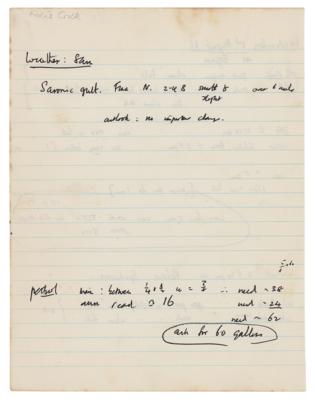 Weather: 8am
Saronic gulf. Fine N. 2-4 & smooth to slight over 6 miles
outlook: no important change.
petrol main: between 1/4 + 1/2 ∴ need ~38
read 16 need ~24
need ~ 62
ask for 60 gallons